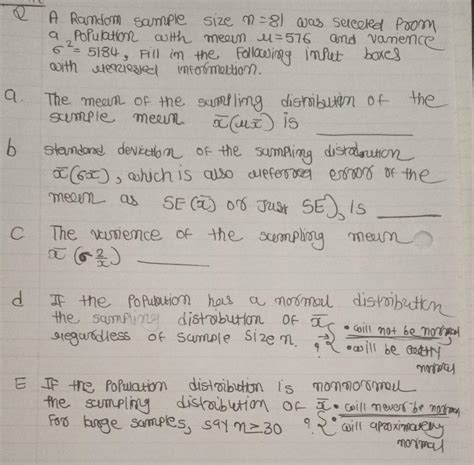 Q A Random sample size n=81 was selected from
a Population with mean μ=576 and varience
σ²=5184, Fill in the following input boxes
with
a. The mean of the sampling distribution of the
sample mean x̄(μx̄) is ________
b standard deviation of the sampling distribution
x̄(σx̄), which is also error of the
mean as SE(x̄) or Just SE), Is ____
C The varience of the sampling mean
x̄ (σ 2/x̄) ______
d If the Population has a normal distribution
the sampling distribution of x̄ { • will not be normal
regardless of sample size n. → ? { • will be normal
E If the Population distribution is nonnormal
the sampling distribution of x̄ • will never be normal
For large samples, say n≥30 ? { • will aproximately
normal